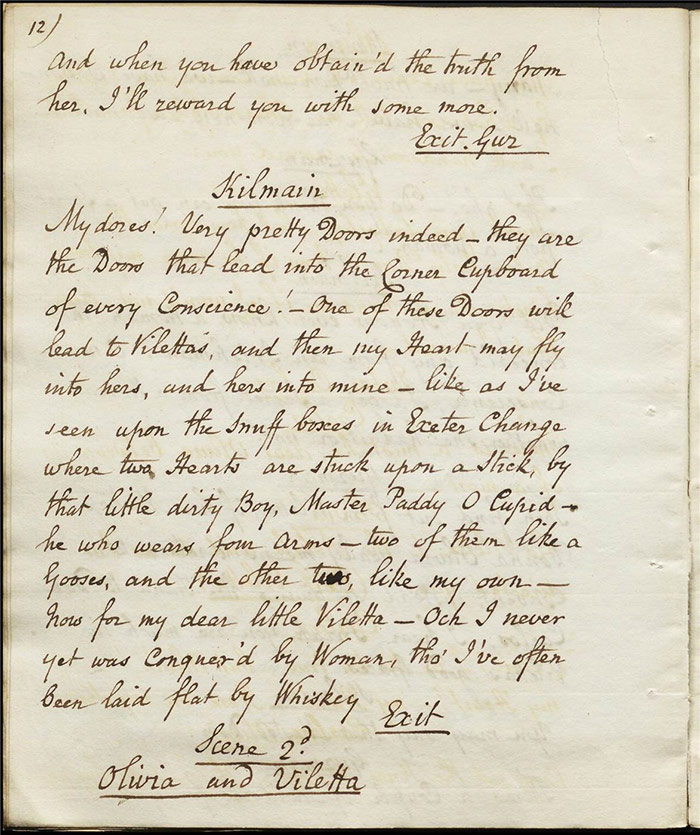 12)
And when you have obtain'd the truth from
her. I'll reward you with some more.
Exit. Guz
Kilmain
Mydores! Very pretty Doors indeed – they are
the Doors that lead into the Corner Cupboard
of every Conscience! – One of these Doors will
lead to Viletta's, and then my Heart may fly
into hers, and hers into mine – like as I've
seen upon the Snuff boxes in Exeter Change
where two Hearts are stuck upon a Stick, by
that little dirty Boy, Master Paddy O Cupid –
he who wears four Arms – two of them like a
Gooses, and the other two, like my own –
Now for my dear little Viletta – Och I never
yet was Conquer'd by Woman, tho' I've often
been laid flat by Whiskey
Exit
Scene 2d
Olivia and Viletta